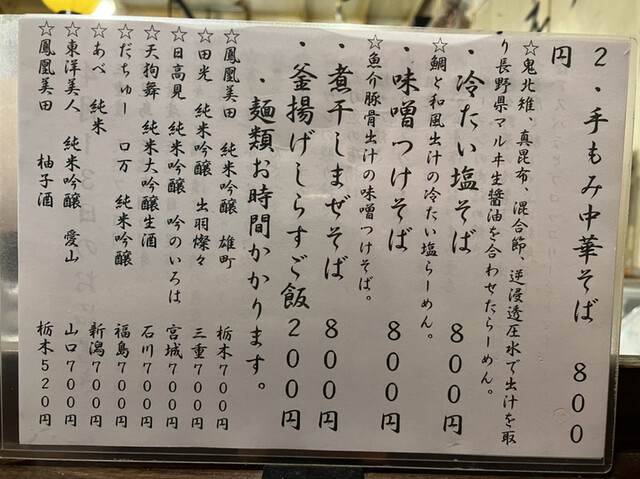 2・手もみ中華そば　800
円
☆鬼北雉、真昆布、混合節、逆浸透圧水で出汁を取
り長野県マルヰ生醤油を合わせたらーめん。
・冷たい塩そば　800円
☆鯛と和風出汁の冷たい塩らーめん。
・味噌つけそば　800円
☆魚介豚骨出汁の味噌つけそば。
・煮干しまぜそば　800円
・釜揚げしらすご飯200円
・麺類お時間かかります。
☆鳳凰美田　純米吟醸　雄町　栃木700円
☆田光　純米吟醸　出羽燦々　三重700円
☆日高見　純米吟醸　吟のいろは　宮城700円
☆天狗舞　純米大吟醸生酒　石川700円
☆だぢゅー　ロ万　純米吟醸　福島700円
☆あべ　純米　新潟700円
☆東洋美人　純米吟醸　愛山　山口700円
☆鳳凰美田　柚子酒　栃木520円